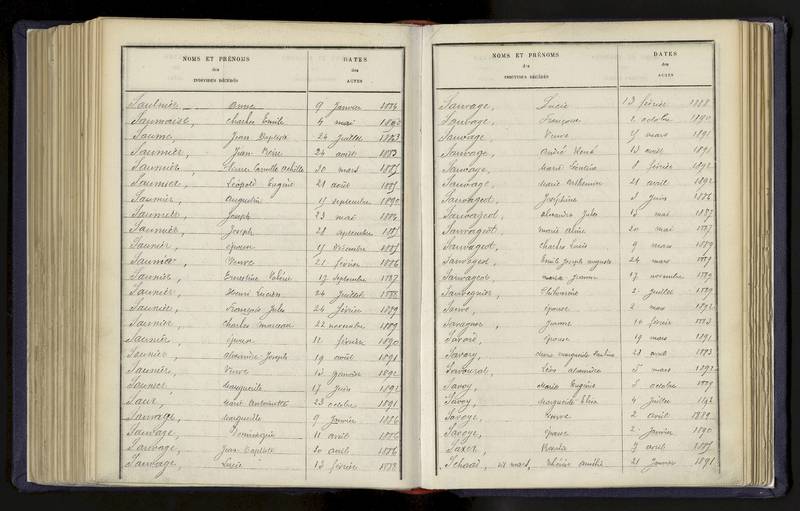 NOMS ET PRÉNOMS
des
INDIVIDUS DÉCÉDÉS
DATES
des
ACTES
Saulnier, Anne 9 Janvier 1884
Saumaise, Charles Emile 4 mai
Saume, Jean Baptiste 24 Juillet 1883
Saunier, Jean 24 août 1883
Saunier, Camille Achille 30 mars 1885
Saunier, Léopold Eugène 21 août 1885
Saunier, Augustin 17 septembre 1890
Saunier, Joseph 23 mai 1884
Saunier, Joseph 28 septembre
Saunier, épouse 17 Décembre 1885
Saunier, Veuve 21 février 1886
Saunier, Ernestine Valérie 17 septembre 1887
Saunier, Henri Lucien 24 Juillet 1888
Saunier, François Jules 24 février 1889
Saunier, Charles 22 novembre 1889
Saunier, épouse 11 février 1890
Saunier, Alexandre Joseph 19 août 1891
Saunier, Veuve 13 Janvier 1892
Saunier, Marguerite 17 Juin 1892
Saur, Antoinette 23 octobre 1891
Sauvage, Marguerite 9 Janvier 1886
Sauvage, Dominique 11 avril 1886
Sauvage, Jean Baptiste 20 avril 1886
Sauvage, Lucie 13 février 1888
NOMS ET PRÉNOMS
des
INDIVIDUS DÉCÉDÉS
DATES
des
ACTES
Sauvage, Lucie 13 février 1888
Sauvage, Françoise 2 octobre 1890
Sauvage, Veuve mars 1891
Sauvage, André René 13 avril 1891
Sauvage, Marie 8 février 1892
Sauvage, Marie 21 avril 1892
Sauvageot, Joséphine 3 Juin 1886
Sauvageot, Alexandre Jules mai 1887
Sauvageot, Marie Aline 20 mai 1887
Sauvageot, Charles Louis 9 mars 1889
Sauvageot, Emile Joseph Auguste 24 mars 1889
Sauvageot, Jeanne 17 novembre 1889
Sauvegnier, Philomène 2 Juillet 1889
Sauve, épouse 2 mai 1892
Savagner, Jeanne 10 février 1883
Savoie, épouse 19 mars 1891
Savory, Marie Marguerite Pauline 28 avril 1883
Alexandre 5 mars 1892
Savoy, Marie Eugénie 5 octobre 1889
Savoy, Marguerite Elisa 4 Juillet
Savoye, Veuve 2 avril 1889
Savoye, épouse 2 Janvier 1890
Saxer, 7 avril 1885
Schaad, Thérèse Amélie 21 Janvier 1891